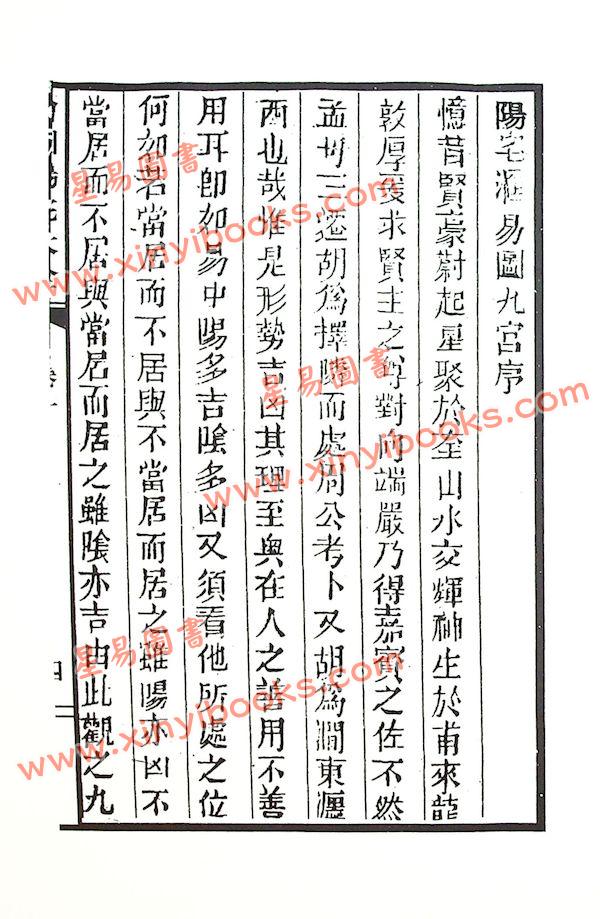 陽宅易圖九宮序
憶昔賢豪蔚起星聚於奎山水交輝神生於甫來龍
敦厚爰求賢主之尊對向端嚴乃得嘉賓之佐不然
孟母三遷胡爲擇隣而處周公考卜又胡爲澗東瀍
西也哉惟是形勢吉凶其理至奥在人之善用不善
用耳即如易中陽多吉陰多凶又須看他所處之位
何如若當居而不居與不當居而居之雖陽亦凶不
當居而不居與當居而居之雖陰亦吉由此觀之九
四
星易圖書
www.xinyibooks.com
星易圖書
www.xinyibooks.com
星易圖書
www.xinyibooks.com